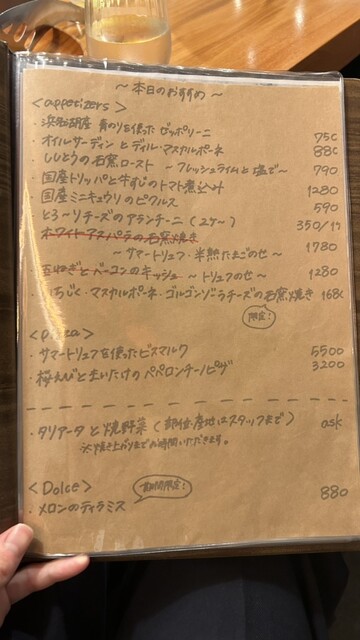 ～ 本日のおすすめ ～
<appetizers>
・浜名湖産 青のりを使ったゼッポリーニ 750
・オイルサーディンとディル・マスカルポーネ 880
・ししとうの石窯ロースト ～フレッシュライムと塩で～ 790
・国産トリッパと牛すじのトマト煮込み 1280
・国産ミニキュウリのピクルス 590
・とろ～りチーズのアランチーニ（2ケ～） 350/1ケ
・ホワイトアスパラの石窯焼き
～サマートリュフ・半熟たまごのせ～ 1780
・玉ねぎとベーコンのキッシュ ～トリュフのせ～ 1280
・いちじく・マスカルポーネ・ゴルゴンゾーラチーズの石窯焼き 168
限定！
<pizza>
・サマートリュフを使ったビスマルク 5500
・桜えびと生いたけのペペロンチーノピザ 3200
・タリアータと焼野菜（部位・産地はスタッフまで） ask
※焼き上がりまでお時間いただきます。
<Dolce>
期間限定！
・メロンのティラミス 880